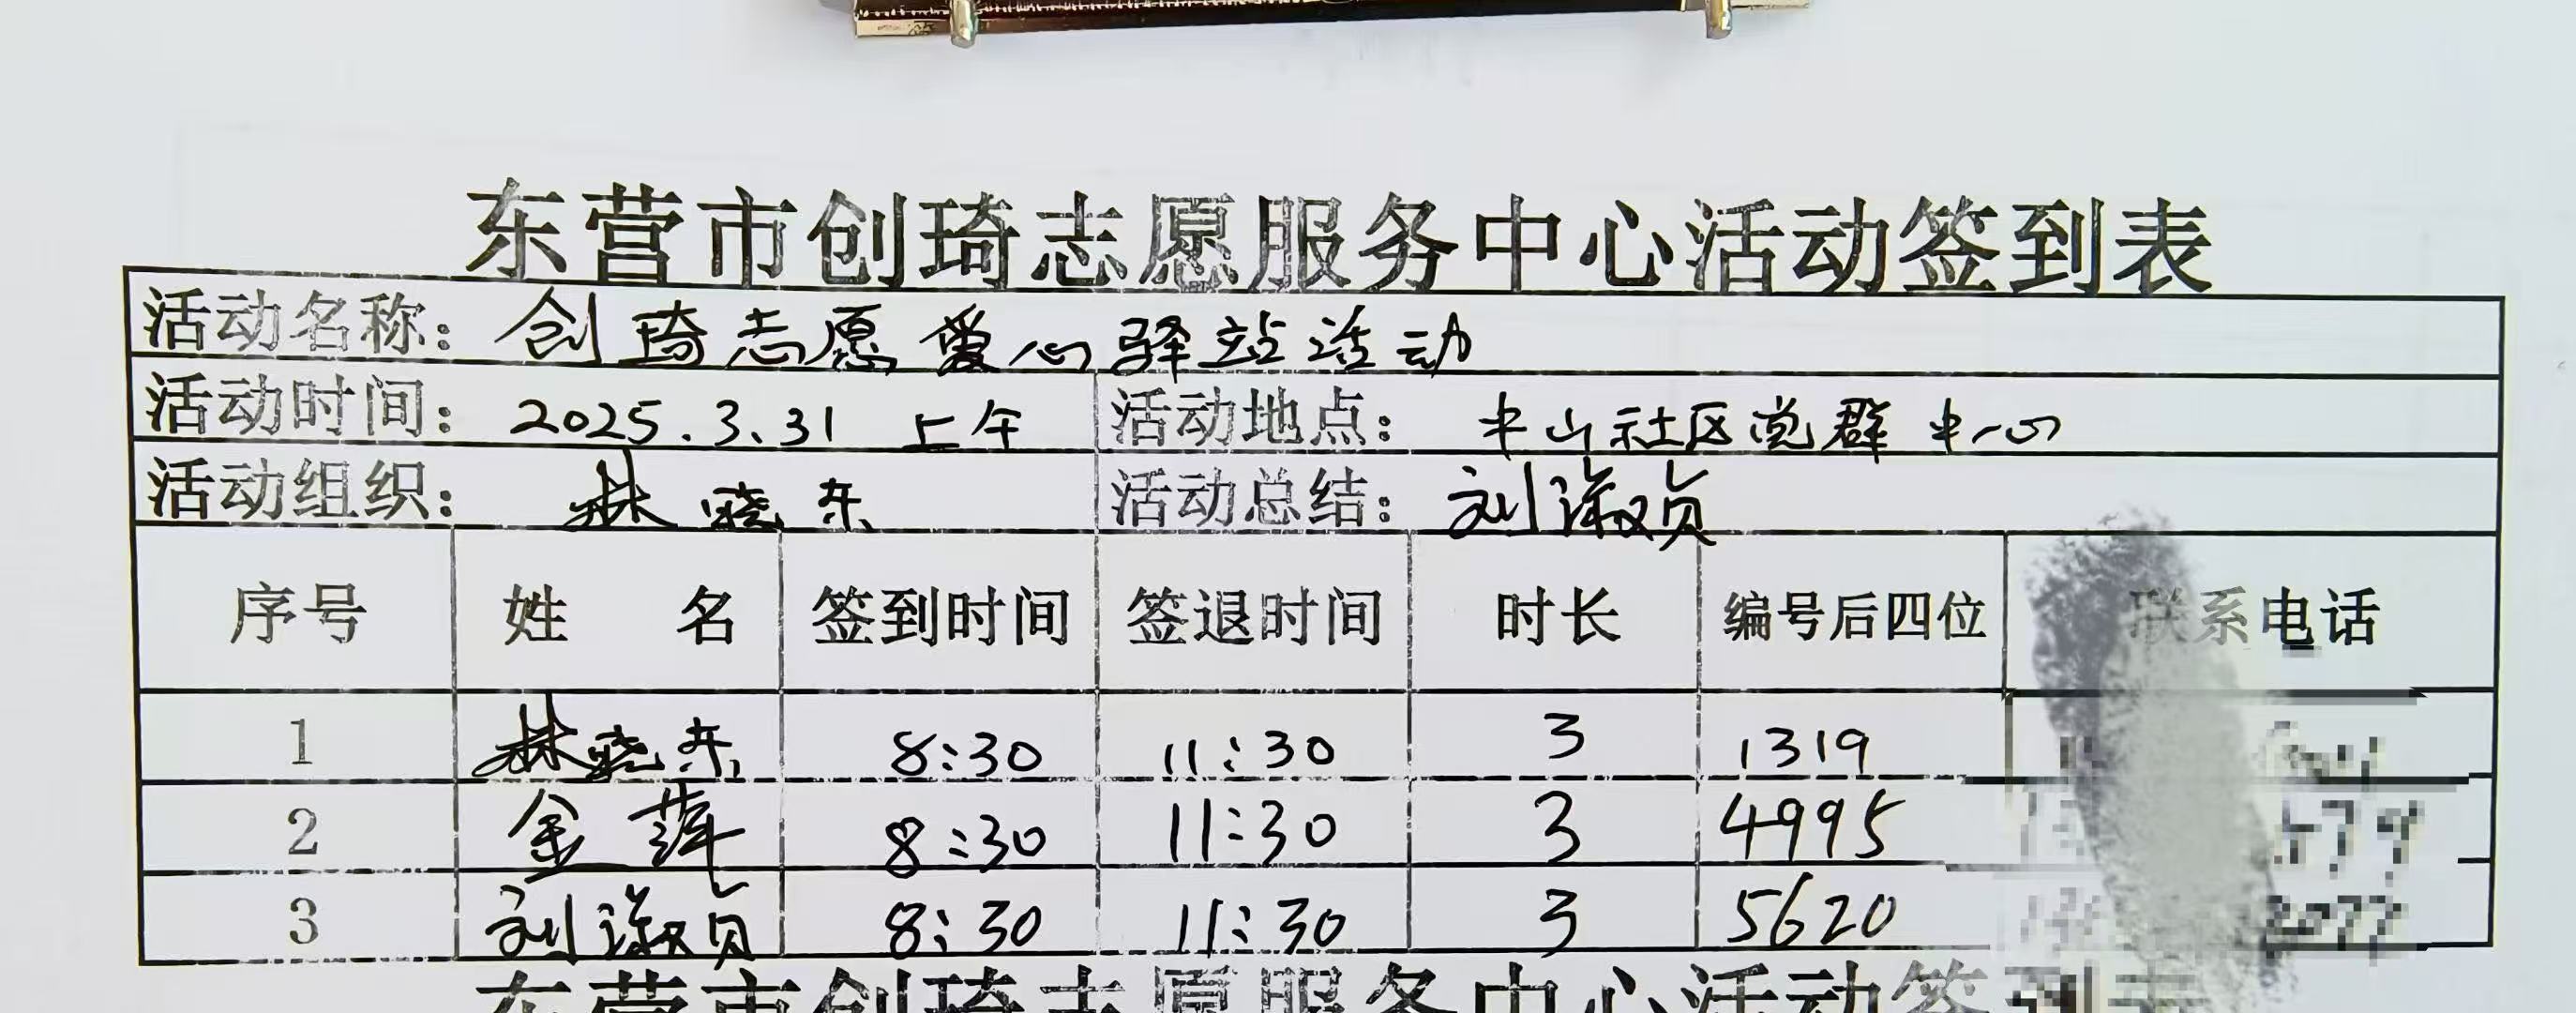 东营市创琦志愿服务中心活动签到表
活动名称：创琦志愿爱心驿站活动
活动时间：2025.3.31 上午 活动地点：中山社区党群中心
活动组织：林晓东 活动总结：刘淑贞
序号 姓 名 签到时间 签退时间 时长 编号后四位 联系电话
1 林晓东 8:30 11:30 3 1319
2 金萍 8:30 11:30 3 4995
3 刘淑贞 8:30 11:30 3 5620
东营市创琦志愿服务中心活动签到表